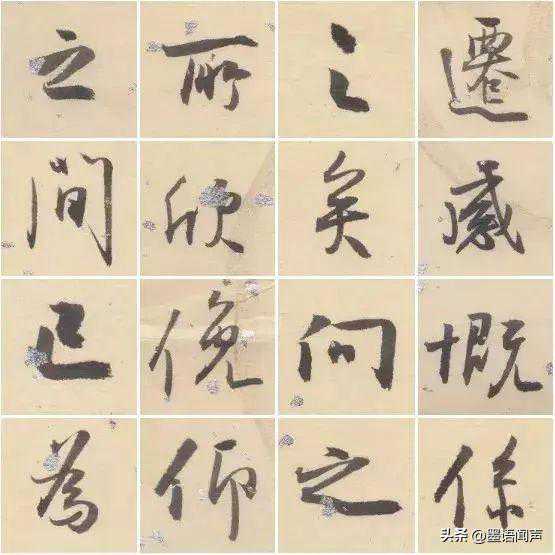 遷感慨係
之矣向之
所欣俛仰
之間已為
头条 @墨语闻声